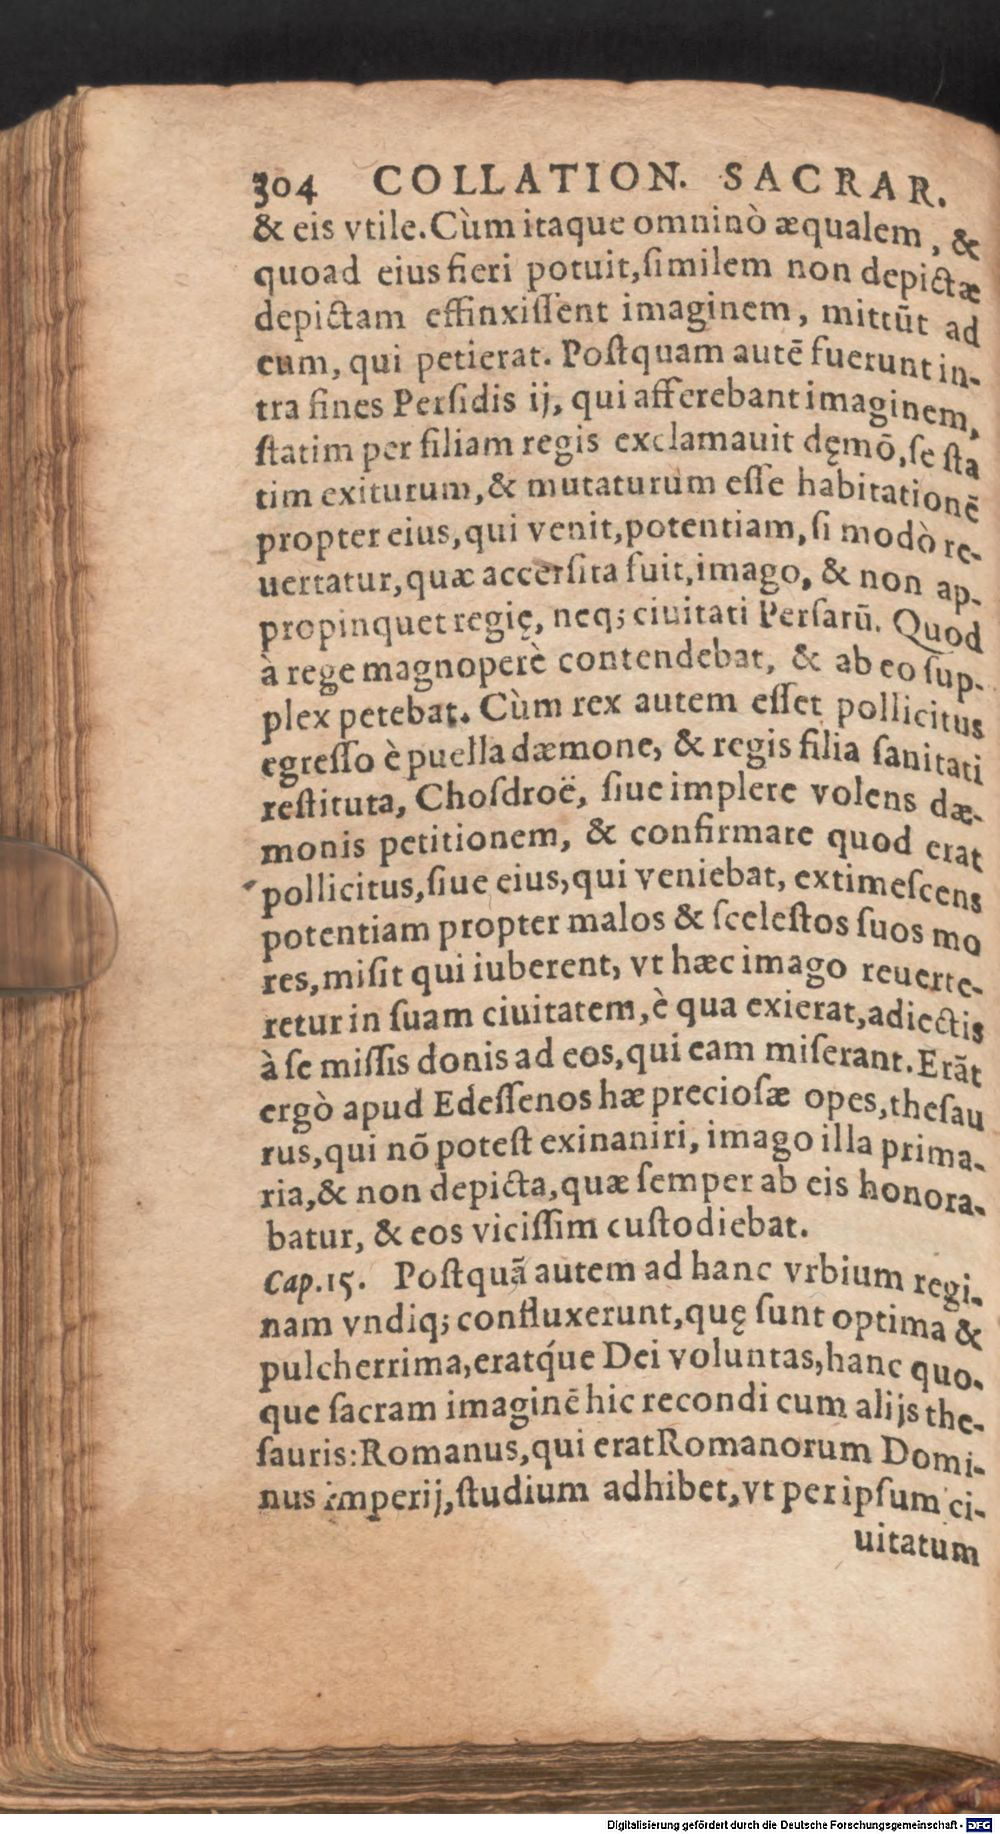 304 COLLATION. SACRAR.
& eis vtile. Cùm itaque omninò æqualem, &
quoad eius fieri potuit, ſimilem non depictæ
depictam effinxiſſent imaginem, mittūt ad
eum, qui petierat. Poſtquam autē fuerunt in-
tra fines Perſidis ij, qui afferebant imaginem,
ſtatim per filiam regis exclamauit dęmō, ſe ſta
tim exiturum, & mutaturum eſſe habitationē
propter eius, qui venit, potentiam, ſi modò re-
uertatur, quæ accerſita fuit, imago, & non ap-
propinquet regię, neq; ciuitati Perſarū. Quod
à rege magnoperè contendebat, & ab eo ſup-
plex petebat. Cùm rex autem eſſet pollicitus
egreſſo è puella dæmone, & regis filia ſanitati
reſtituta, Choſdroë, ſiue implere volens dæ-
monis petitionem, & confirmare quod erat
pollicitus, ſiue eius, qui veniebat, extimeſcens
potentiam propter malos & ſceleſtos ſuos mo
res, miſit qui iuberent, vt hæc imago reuerte-
retur in ſuam ciuitatem, è qua exierat, adiectis
à ſe miſſis donis ad eos, qui eam miſerant. Erāt
ergò apud Edeſſenos hæ precioſæ opes, theſau
rus, qui nō poteſt exinaniri, imago illa prima-
ria, & non depicta, quæ ſemper ab eis honora-
batur, & eos viciſſim cuſtodiebat.
Cap. 15. Poſtquā autem ad hanc vrbium regi-
nam vndiq; confluxerunt, quę ſunt optima &
pulcherrima, eratq́ue Dei voluntas, hanc quo-
que ſacram imaginē hic recondi cum alijs the-
ſauris: Romanus, qui erat Romanorum Domi-
nus imperij, ſtudium adhibet, vt per ipſum ci-
uitatum
Digitalisierung gefördert durch die Deutsche Forschungsgemeinschaft - DFG